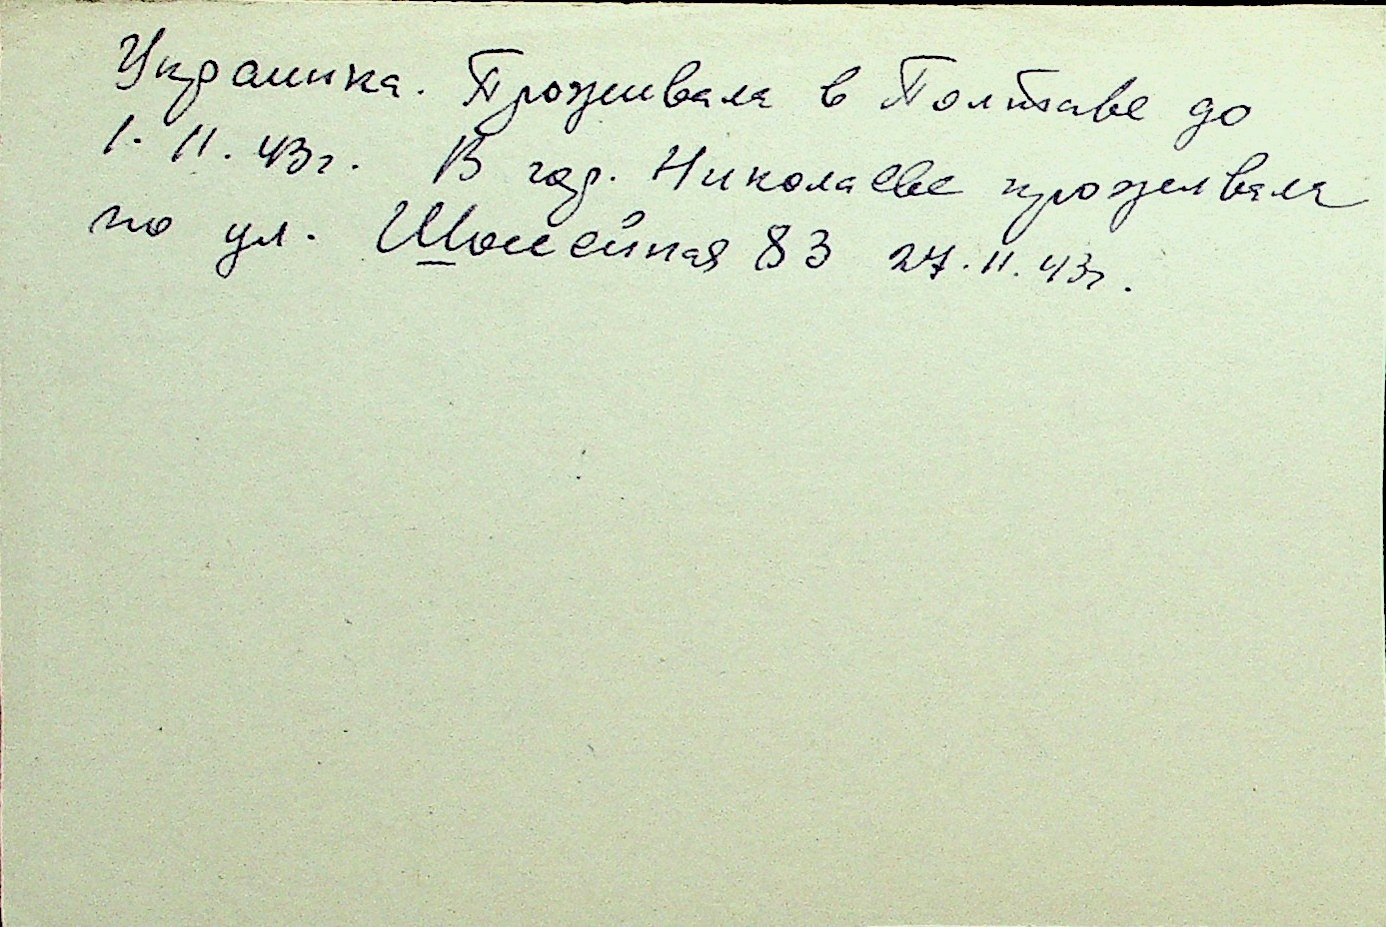 Украинка. Проживала в Полтаве до
1.11.43г. В гор. Николаеве проживала
по ул. Шоссейная 83 27.11.43г.